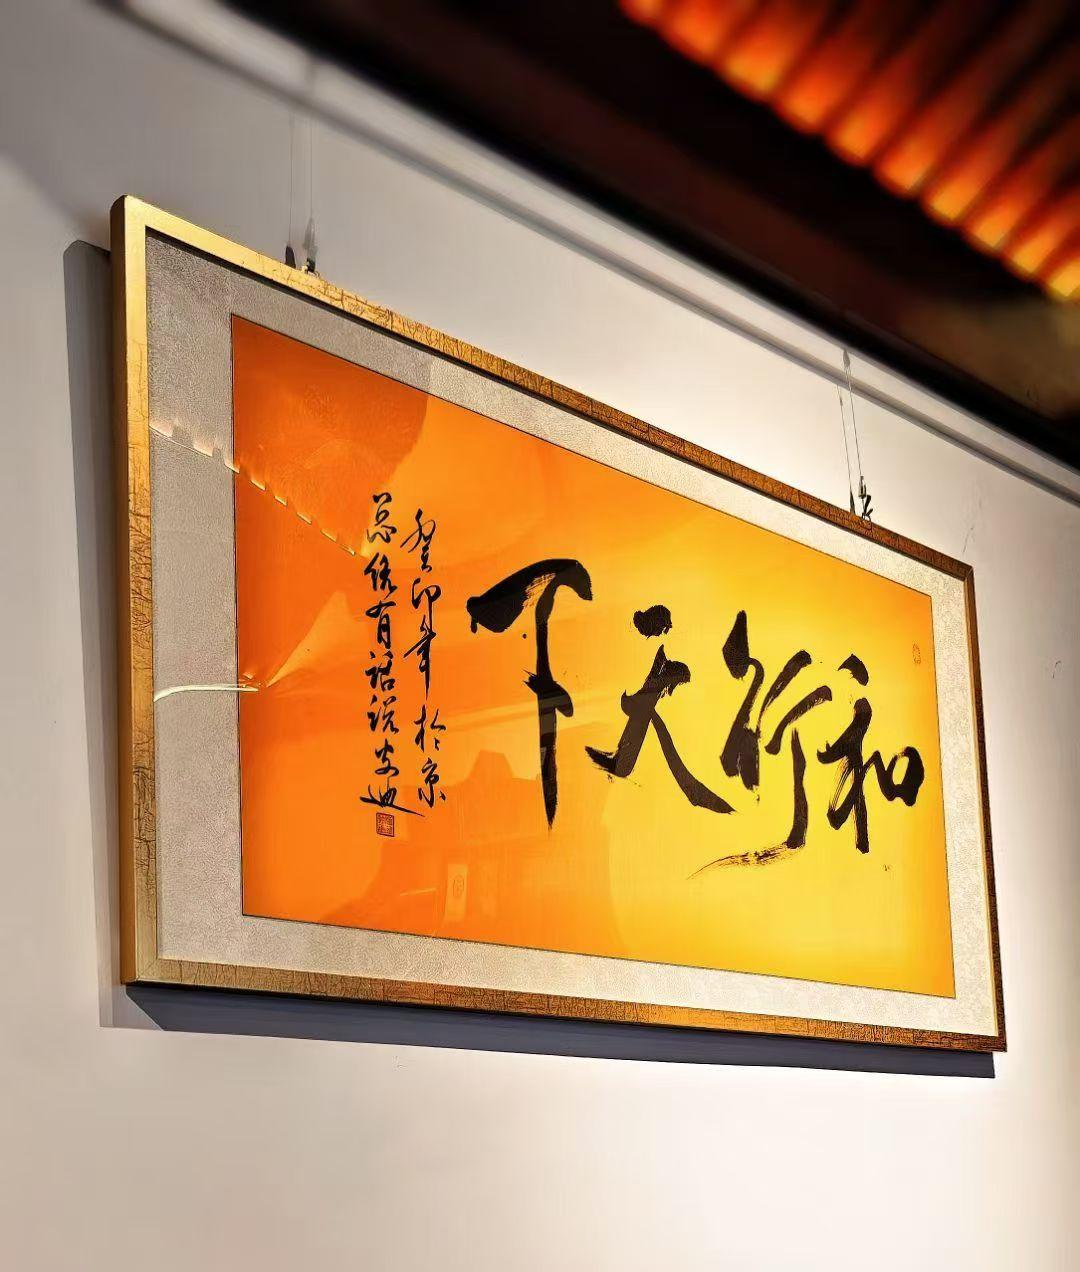 和行天下
癸卯年於京
总统有话说安迪